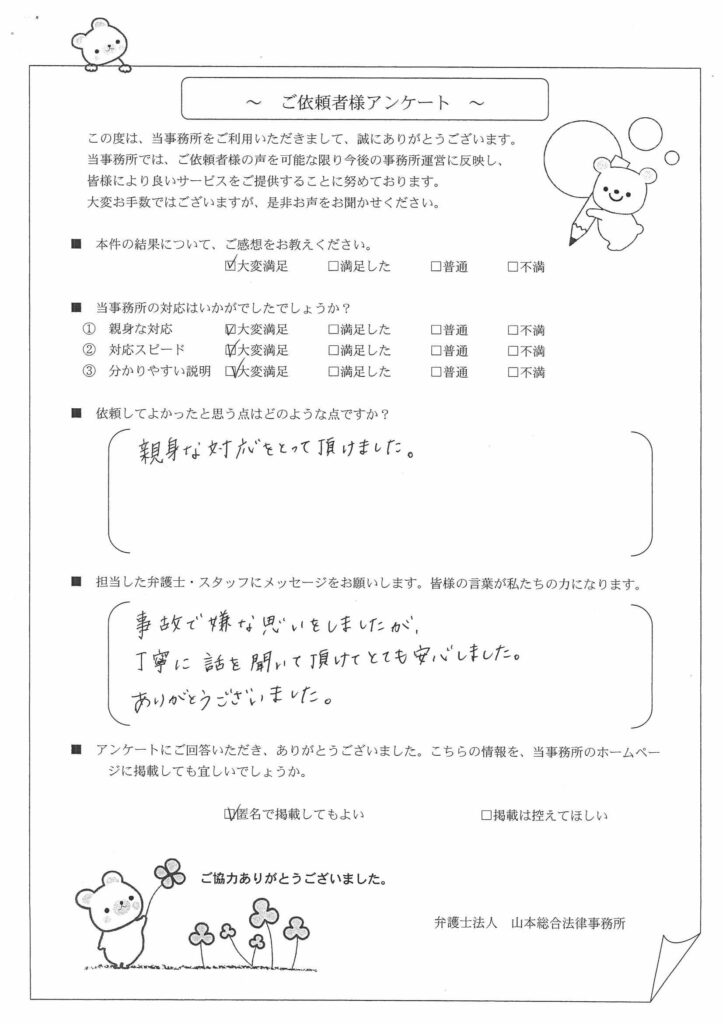 ～　ご依頼者様アンケート　～
この度は、当事務所をご利用いただきまして、誠にありがとうございます。
当事務所では、ご依頼者様の声を可能な限り今後の事務所運営に反映し、
皆様により良いサービスをご提供することに努めております。
大変お手数ではございますが、是非お声をお聞かせください。
■　本件の結果について、ご感想をお教えください。
☑大変満足　□満足した　□普通　□不満
■　当事務所の対応はいかがでしたでしょうか？
①　親身な対応　☑大変満足　□満足した　□普通　□不満
②　対応スピード　☑大変満足　□満足した　□普通　□不満
③　分かりやすい説明　☑大変満足　□満足した　□普通　□不満
■　依頼してよかったと思う点はどのような点ですか？
親身な対応をとって頂けました。
■　担当した弁護士・スタッフにメッセージをお願いします。皆様の言葉が私たちの力になります。
事故で嫌な思いをしましたが、
丁寧に話を聞いて頂けてとても安心しました。
ありがとうございました。
■　アンケートにご回答いただき、ありがとうございました。こちらの情報を、当事務所のホームペー
ジに掲載しても宜しいでしょうか。
☑匿名で掲載してもよい　□掲載は控えてほしい
ご協力ありがとうございました。
弁護士法人　山本総合法律事務所